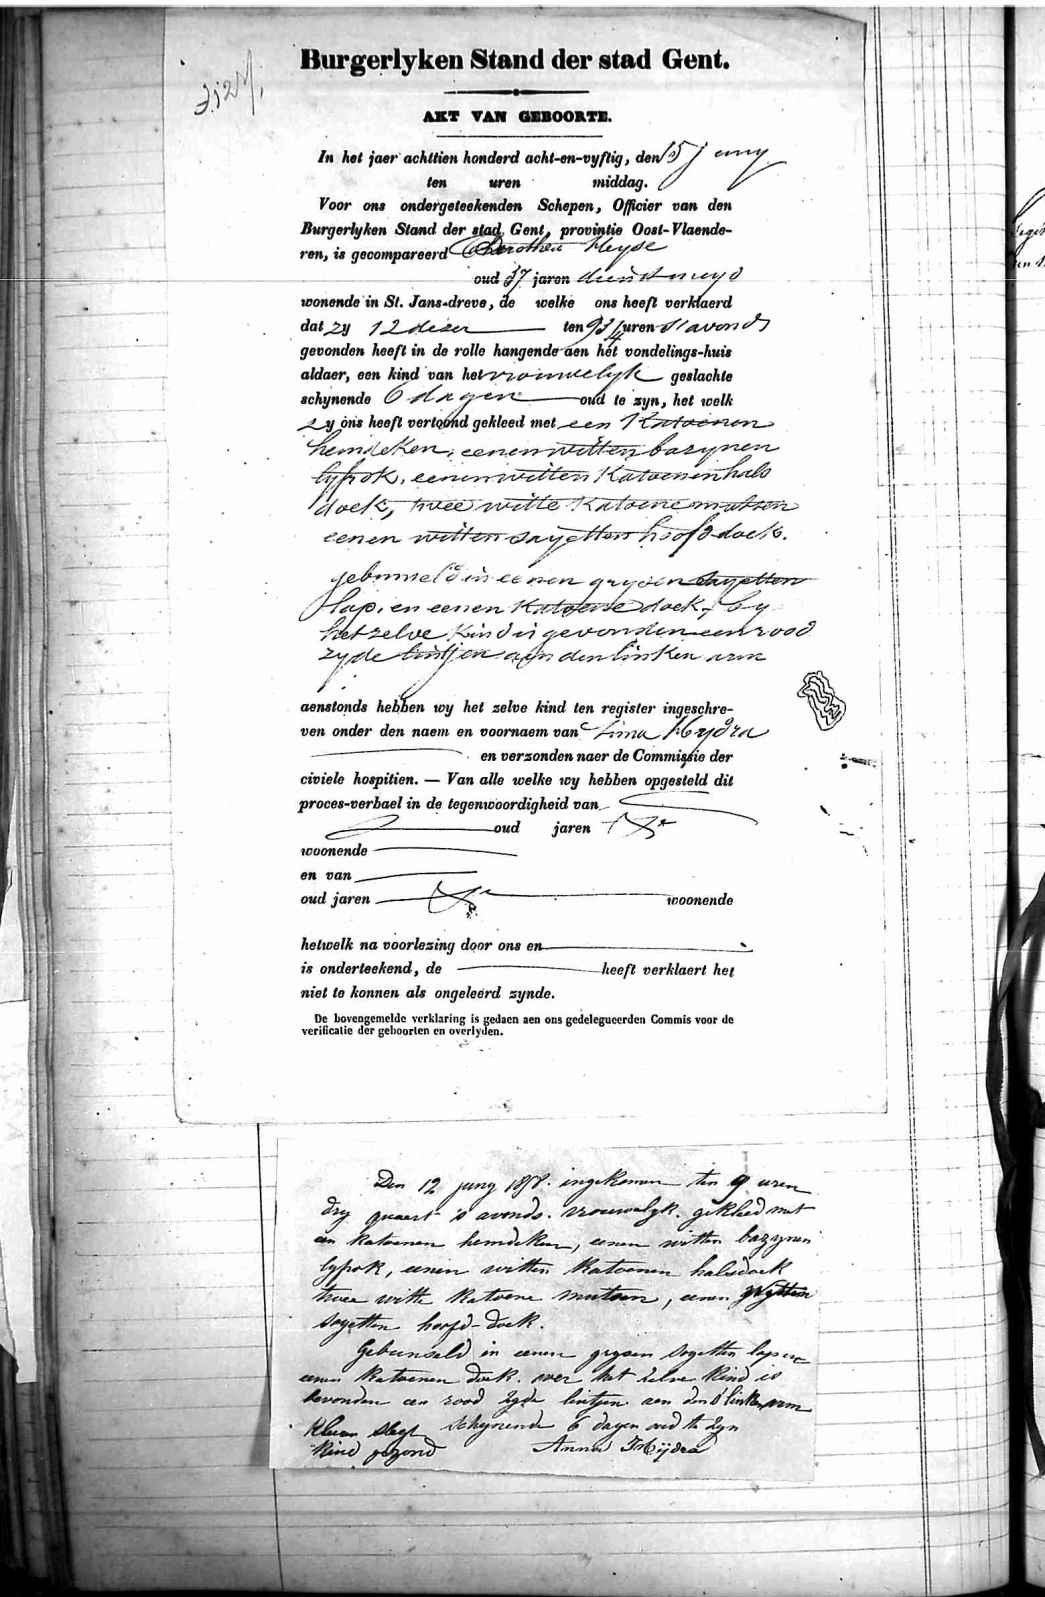 Burgerlyken Stand der stad Gent.
AKT VAN GEBOORTE.
In het jaer achttien honderd acht-en-vyftig, den 15 juny
ten uren middag.
Voor ons ondergeteekenden Schepen, Officier van den
Burgerlyken Stand der stad Gent, provintie Oost-Vlaende-
ren, is gecompareerd Dorothea Heyse
oud 37 jaren dienstmeyd
wonende in St. Jans-dreve, de welke ons heeft verklaerd
dat zy 12 dezer ten 9 3/4 uren s'avonds
gevonden heeft in de rolle hangende aen het vondelings-huis
aldaer, een kind van het vrouwelyk geslachte
schynende 6 dagen oud te zyn, het welk
zy ons heeft vertoond gekleed met een Katoenen
hemdeken, eenen witten bazynen
lyfrok, eenen witten Katoenen hals
doek, twee witte Katoene mutsen
eenen witten sayetten hoofd-doek.
gebunseld in eenen gryzen sayetten
lap, en eenen Katoene doek, by
het zelve Kind is gevonden een rood
zyde lintjen aen den linken arm
aenstonds hebben wy het zelve kind ten register ingeschre-
ven onder den naem en voornaem van Hydra
en verzonden naer de Commissie der
civiele hospitien. — Van alle welke wy hebben opgesteld dit
proces-verbael in de tegenwoordigheid van
oud jaren
woonende
en van
oud jaren woonende
hetwelk na voorlezing door ons en
is onderteekend, de heeft verklaert het
niet te konnen als ongeleerd zynde.
De bovengemelde verklaring is gedaen aen ons gedelegueerden Commis voor de
verificatie der geboorten en overlyden.
Den 12 juny 1858. ingekomen ten 9 uren
dry quaert 's avonds. vrouwelyk. gekleed met
een katoenen hemdeken, eenen witten bazynen
lyfrok, eenen witten Katoenen halsdoek
twee witte Katoene mutsen, eenen
sayetten hoofd-doek.
Gebunseld in eenen gryzen sayetten lap en
eenen Katoenen doek. het zelve Kind is
bevonden een rood zyde lintjen aen den linken arm
schynende 6 dagen oud te zyn
Kind gezond Anna Hijdra